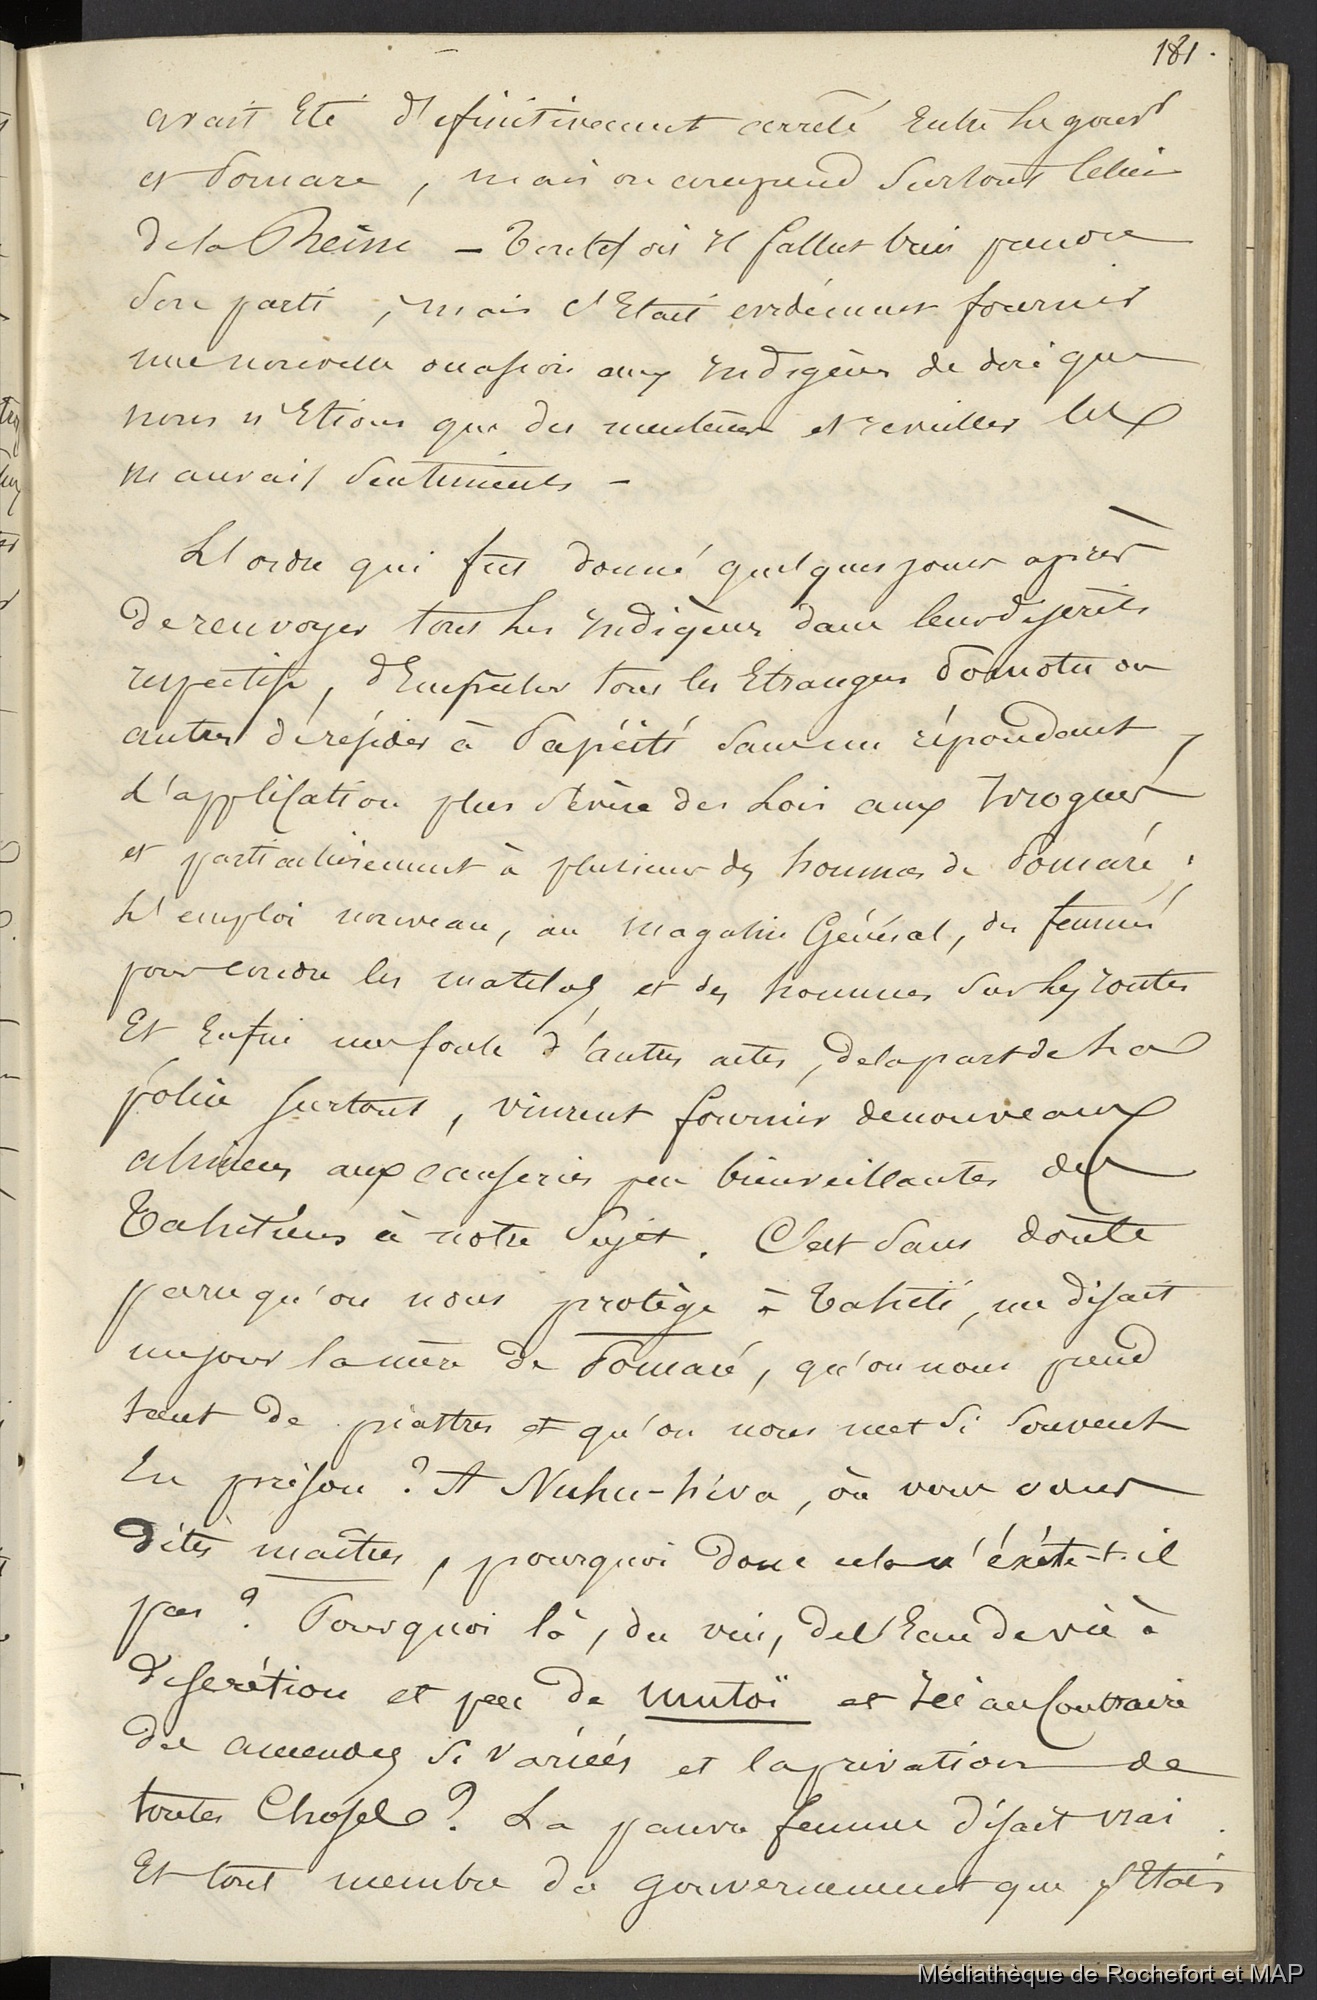 181.
avait été définitivement arrêté entre le gouvt
et Pomare, mais on comprend surtout celui
de la Reine — Toutefois il fallut bien prendre
son parti, mais c'était évidemment fournir
une nouvelle occasion aux indigènes de dire que
nous n'étions que des menteurs et réveiller les
mauvais sentiments —
L'ordre qui fut donné quelques jours après
de renvoyer tous les indigènes dans leurs districts
respectifs, d'empêcher tous les étrangers Pomotu ou
autres de résider à Papéiti sans un répondant,
L'application plus sévère des Lois aux ivrognes
et particulièrement à plusieurs des hommes de Pomaré;
L'emploi nouveau, au magasin Général, des femmes
pour coudre les matelas, et des hommes sur les routes
Et enfin une foule d'autres actes, de la part de la
police surtout, vinrent fournir de nouveaux
alimens aux causeries peu bienveillantes des
Tahitiens à notre sujet. C'est sans doute
parcequ'on nous protège à Tahiti, me disait
un jour la mère de Pomaré, qu'on nous prend
tant de piastres et qu'on nous met si souvent
En prison? A Nuhu-hiva, où vous vous
dites maîtres, pourquoi donc cela n'éxiste-t-il
pas? Pourquoi là, du vin, de l'Eau de vie à
discrétion et peu de mutoï et ici au Contraire
des amendes si variées et la privation de
toutes Choses? La pauvre femme disait vrai.
Et tout membre du gouvernement que j'Etais
Médiathèque de Rochefort et MAP